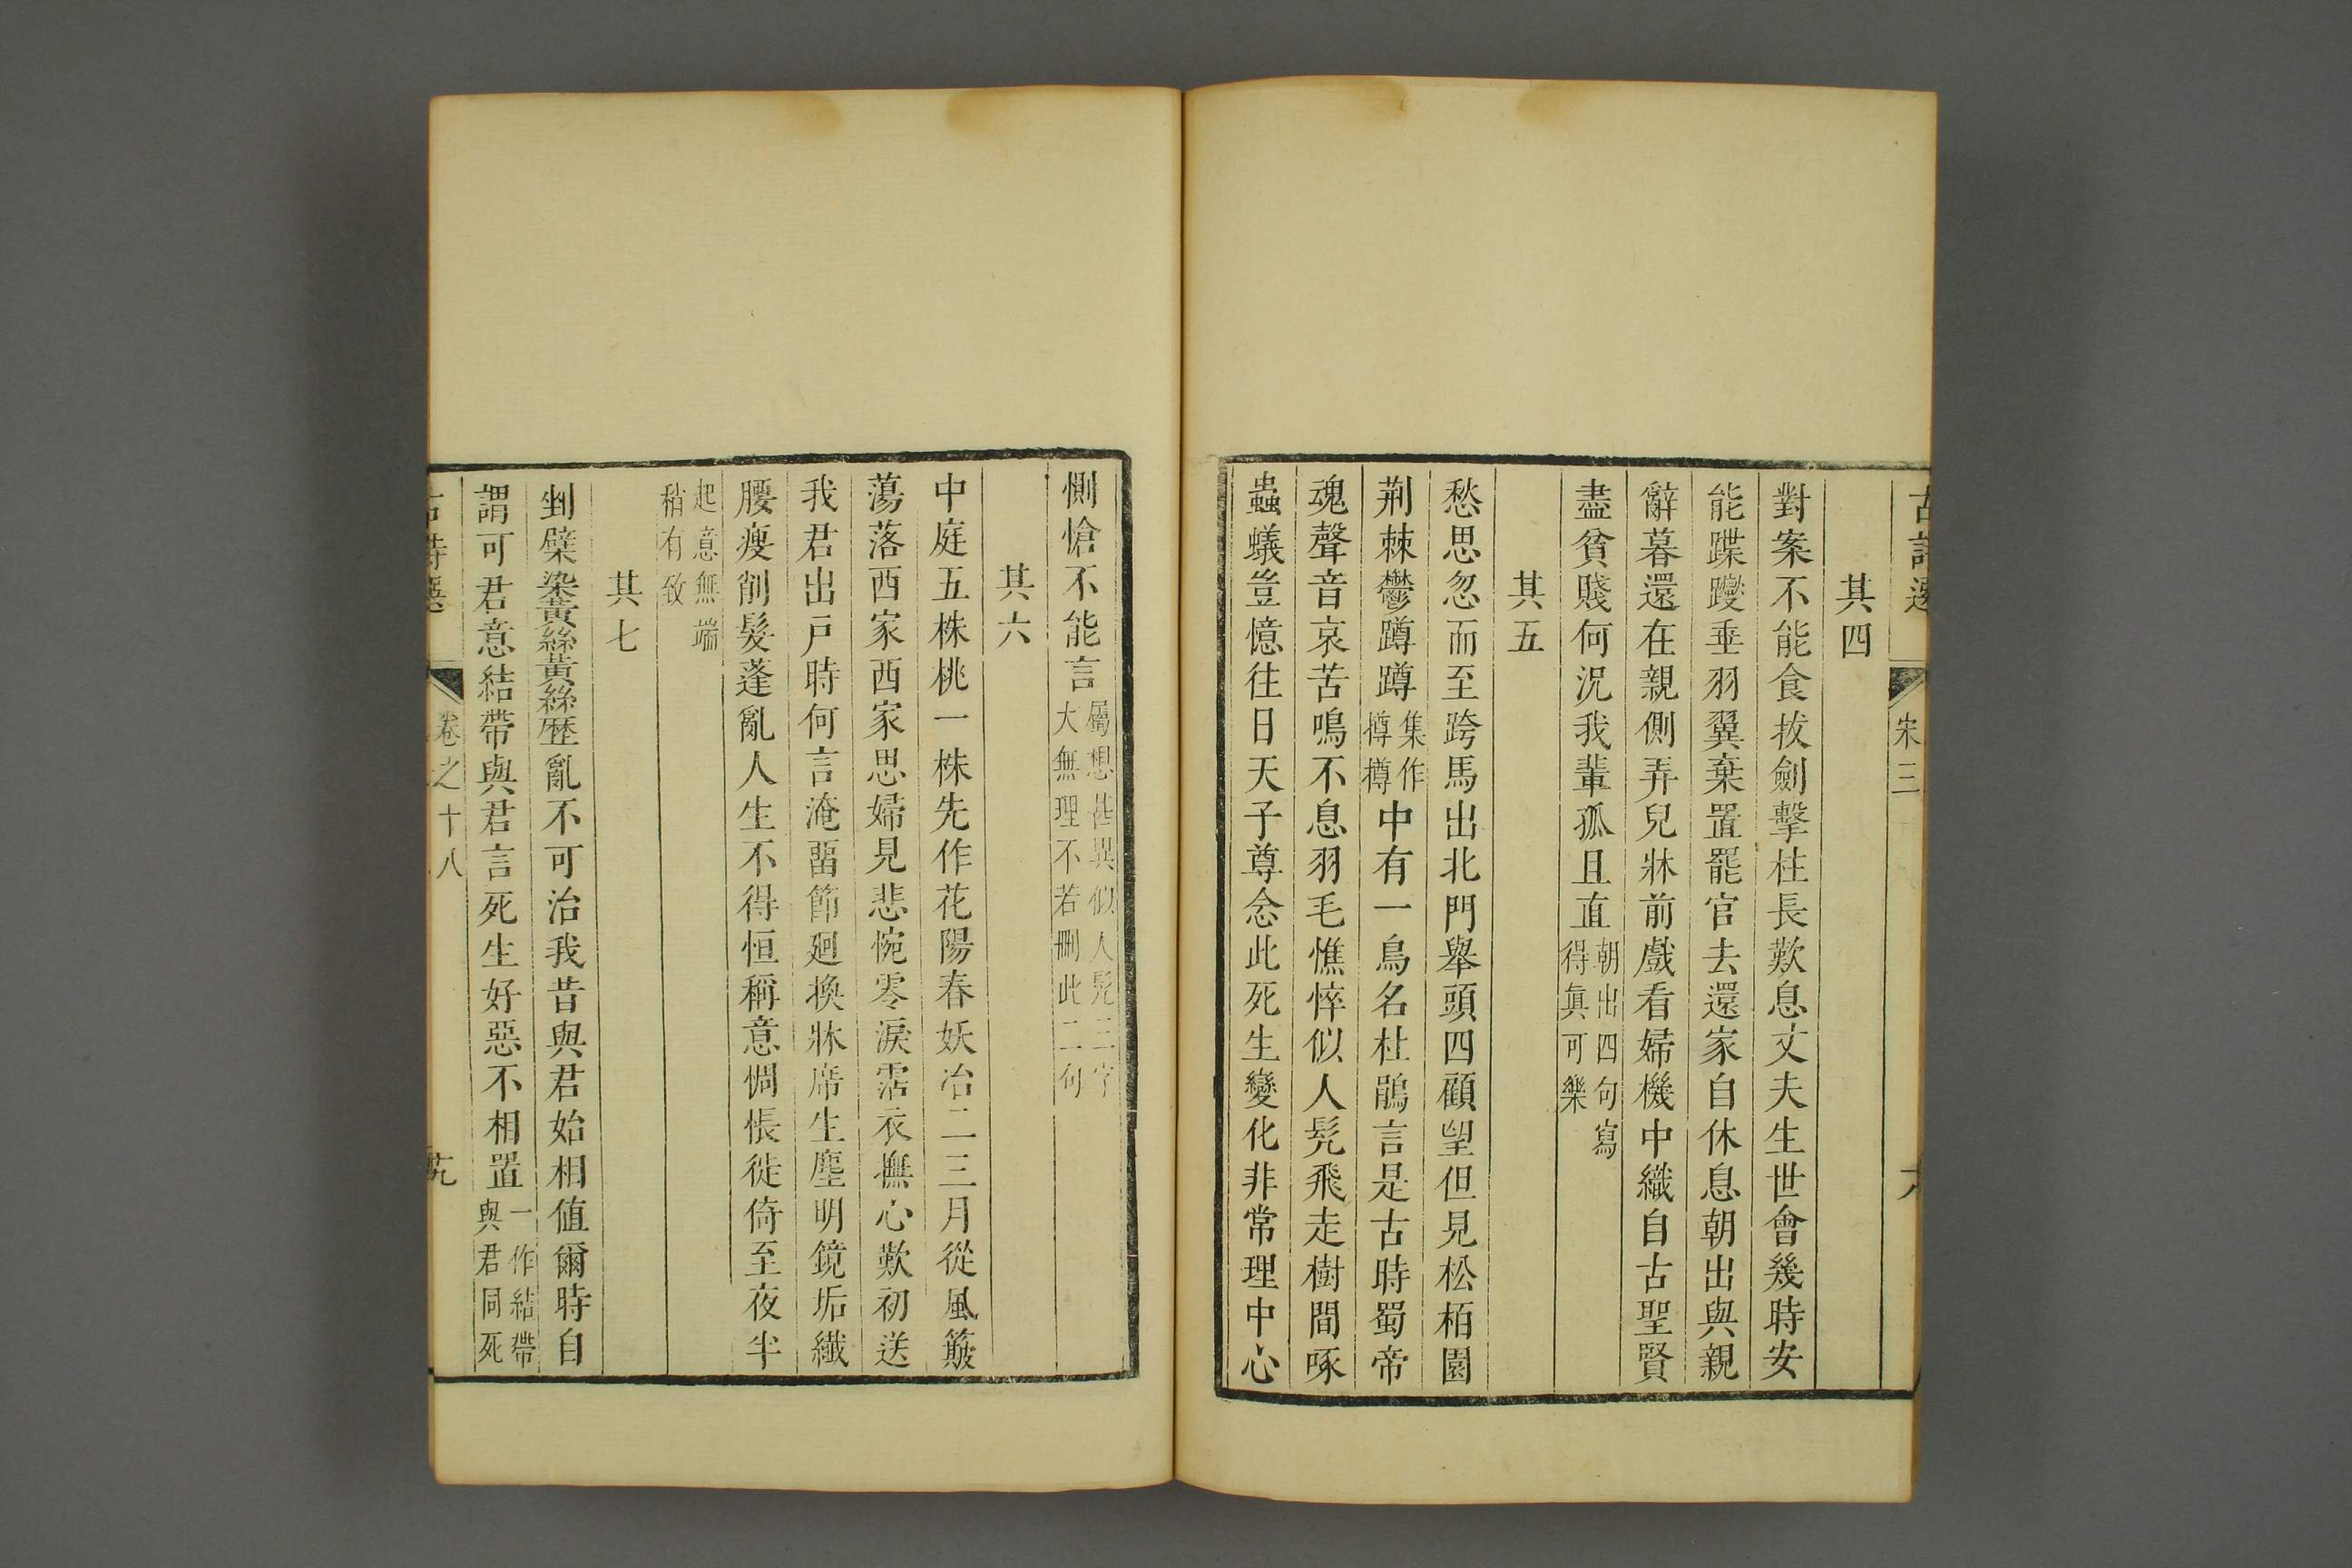 其四
對案不能食拔劍擊柱長歎息丈夫生世會幾時安
能蹀躞垂羽翼棄置罷官去還家自休息朝出與親
辭暮還在親側弄兒牀前戲看婦機中織自古聖賢
盡貧賤何況我輩孤且直朝出四句寫得眞可樂
其五
愁思忽而至跨馬出北門舉頭四顧望但見松栢園
荆棘鬱蹲蹲集作樽樽中有一鳥名杜鵑言是古時蜀帝
魂聲音哀苦鳴不息羽毛憔悴似人髡飛走樹間啄
蟲蟻豈憶往日天子尊念此死生變化非常理中心
惻愴不能言屬想甚異似人髡三字大無理不若刪此二句
其六
中庭五株桃一株先作花陽春妖冶二三月從風簸
蕩落西家西家思婦見悲惋零淚霑衣撫心歎初送
我君出戸時何言淹畱節廻換牀席生塵明鏡垢纖
腰瘦削髮蓬亂人生不得恒稱意惆悵徙倚至夜半
起意無端稍有致
其七
剉檗染黃絲黃絲歷亂不可治我昔與君始相值爾時自
謂可君意結帶與君言死生好惡不相置一作結帶與君同死
古詩選 卷之十八
宋三